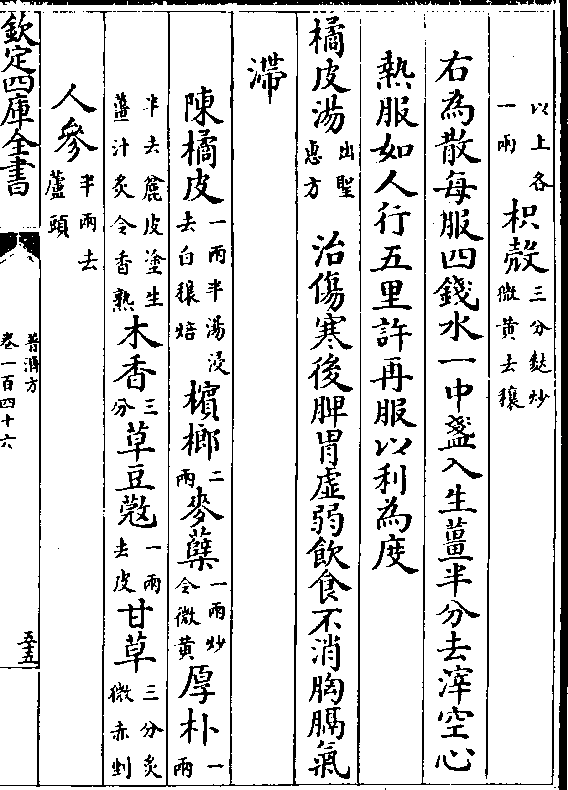 以上各一兩枳殼三分麩炒微黃去穰
右為散每服四錢水一中盞入生薑半分去滓空心
熱服如人行五里許再服以利為度
橘皮湯出聖惠方 治傷寒後脾胃虛弱飲食不消胸膈氣
滯
陳橘皮一兩半湯浸去白穰焙檳榔二兩麥蘖一兩炒令微黃厚朴一兩
半去麄皮塗生薑汁炙令香熟木香三分草豆蔻一兩去皮甘草三分炙微赤剉
人參半兩去蘆頭
欽定四庫全書
普濟方
卷一百四十六
五五